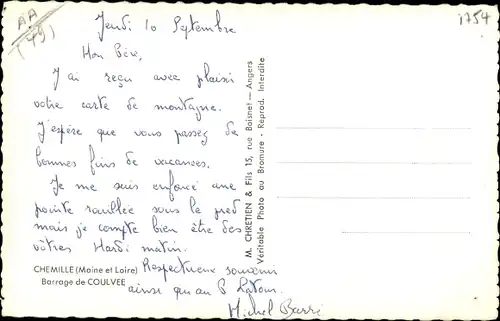 AA
(49)
1754
Jeudi 10 Septembre
Mon Père,
J'ai reçu avec plaisir
votre carte de montagne.
J'espère que vous passez de
bonnes fins de vacances.
Je me suis enfoncé une
pointe rouillée sous le pied
mais je compte bien être des
vôtres Mardi matin.
CHEMILLE (Maine et Loire) Respectueux souvenir
Barrage de COULVEE
ainsi qu'au P.
Michel
M. CHRETIEN & Fils 15, rue Boisnet — Angers
Véritable Photo au Bromure - Reprod. Interdite